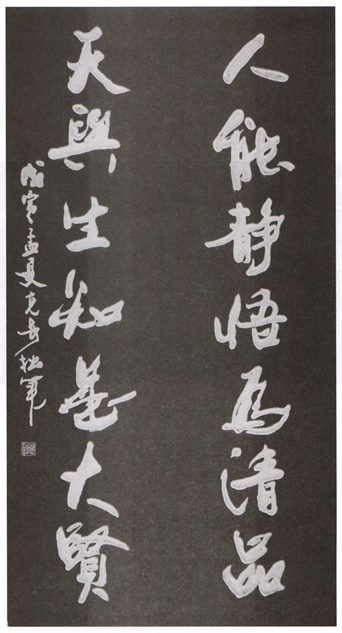 人能静悟為清品
天與生知是大賢
戊寅孟夏克岳拙筆